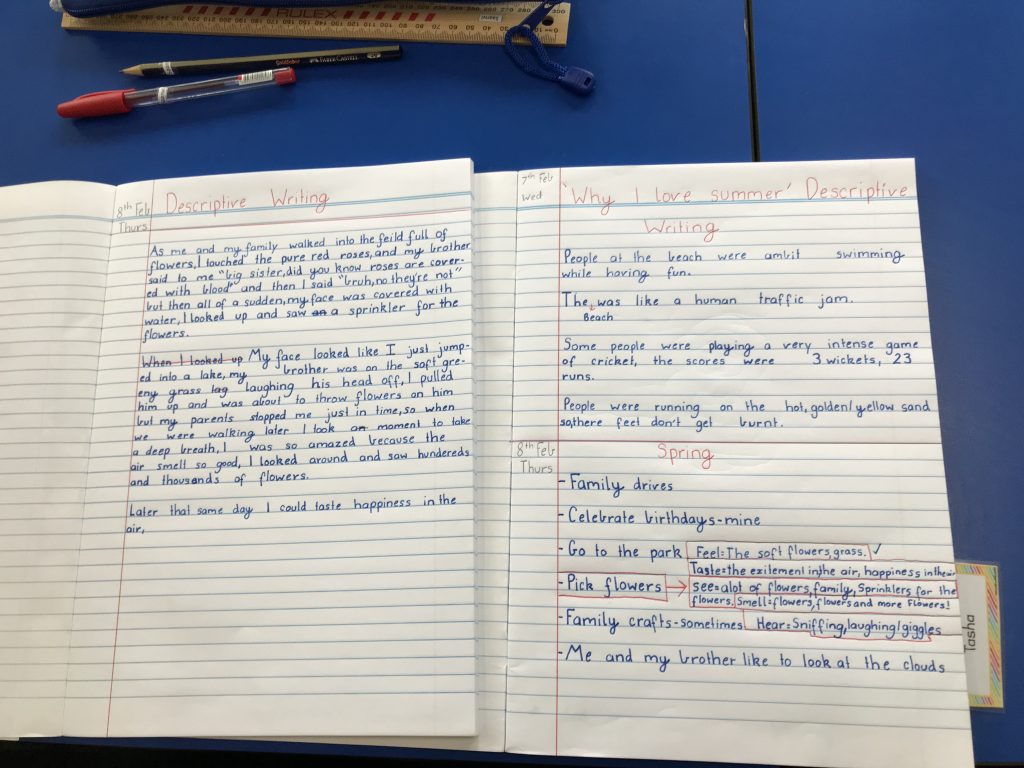 RULEX
Goldfaber
FABER-CASTELL
8th Feb
Thurs
Descriptive Writing
As me and my family walked into the feild full of
flowers, I touched the pure red roses, and my brother
said to me "big sister, did you know roses are cover-
ed with blood" and then I said "bruh, no they're not"
but then all of a sudden, my face was covered with
water, I looked up and saw an a sprinkler for the
flowers.
When I looked up My face looked like I just jump-
ed into a lake, my brother was on the soft gre-
eny grass lag laughing his head off, I pulled
him up and was about to throw flowers on him
but my parents stopped me just in time, so when
we were walking later I took an moment to take
a deep breath, I was so amazed because the
air smell so good, I looked around and saw hundereds
and thousands of flowers.
Later that same day I could taste happiness in the
air,
7th Feb
Wed
'Why I love summer' Descriptive
Writing
People at the beach were swimming
while having fun.
The Beach was like a human traffic jam.
Some people were playing a very intense game
of cricket, the scores were 3 wickets, 23
runs.
People were running on the hot, golden/yellow sand
so, there feet don't get burnt.
8th Feb
Thurs
Spring
- Family drives
- Celebrate birthdays - mine
- Go to the park Feel= The soft flowers, grass. ✓
Taste= the exitement in the air, happiness in the air
- Pick flowers → see= alot of flowers, family, Sprinklers for the
flowers. Smell= flowers, flowers and more Flowers!
- Family crafts - sometimes Hear= Sniffing, laughing/giggles
- Me and my brother like to look at the clouds
Tasha